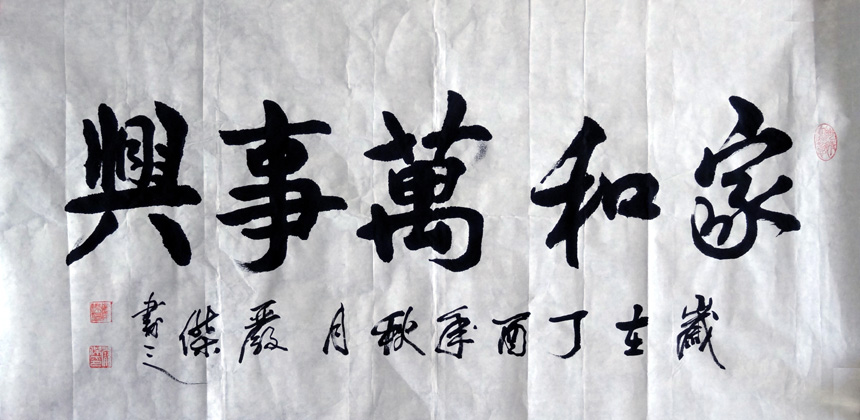 家和萬事興
歲在丁酉年秋月嚴傑書之